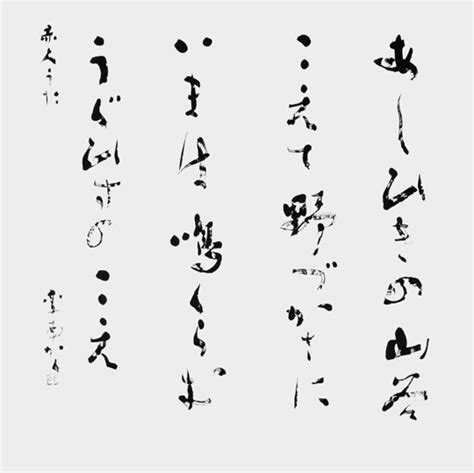 あしひきの山谷
こえて野づかさに
いまは鳴くらむ
うぐひすのこえ
赤人うた